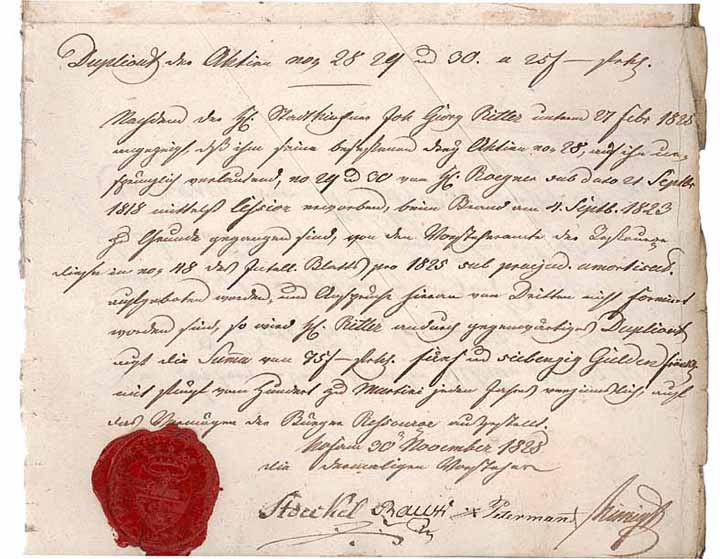 Duplicat der Aktien no, 28 29 und 30. a 25f — rhl.
Nachdem der H. Stadtkirchner Joh Georg Ritter unterm 27 Febr 1828
angezeigt, daß ihm seine besessenen drey Aktien no, 28, auf ihn ur-
sprünglich verlautend, no, 29 und 30 von H. Roegner sub dato 21 Septbr
1818 mittelst Cession erworben, beim Brand am 4. Septb. 1823
zu Grunde gegangen sind, von dem Vorsteheramte der Ressource
dieselben no, 48 des Intell. Blatts pro 1825 sub praejud. amortisat.
aufgeboten worden, und Ansprüche hieran von Dritten nicht formirt
worden sind, so wird H. Ritter andurch gegenwärtiges Duplicat
auf die Summa von 75f — rhl. fünf und siebenzig Gulden
mit fünf vom Hundert zu Martini jeden Jahres verzinnslich, auf
das Vermögen der Bürger Ressource ausgestellt.
Hof am 30 November 1828
die dermaligen Vorsteher
Stoeckel Petermann